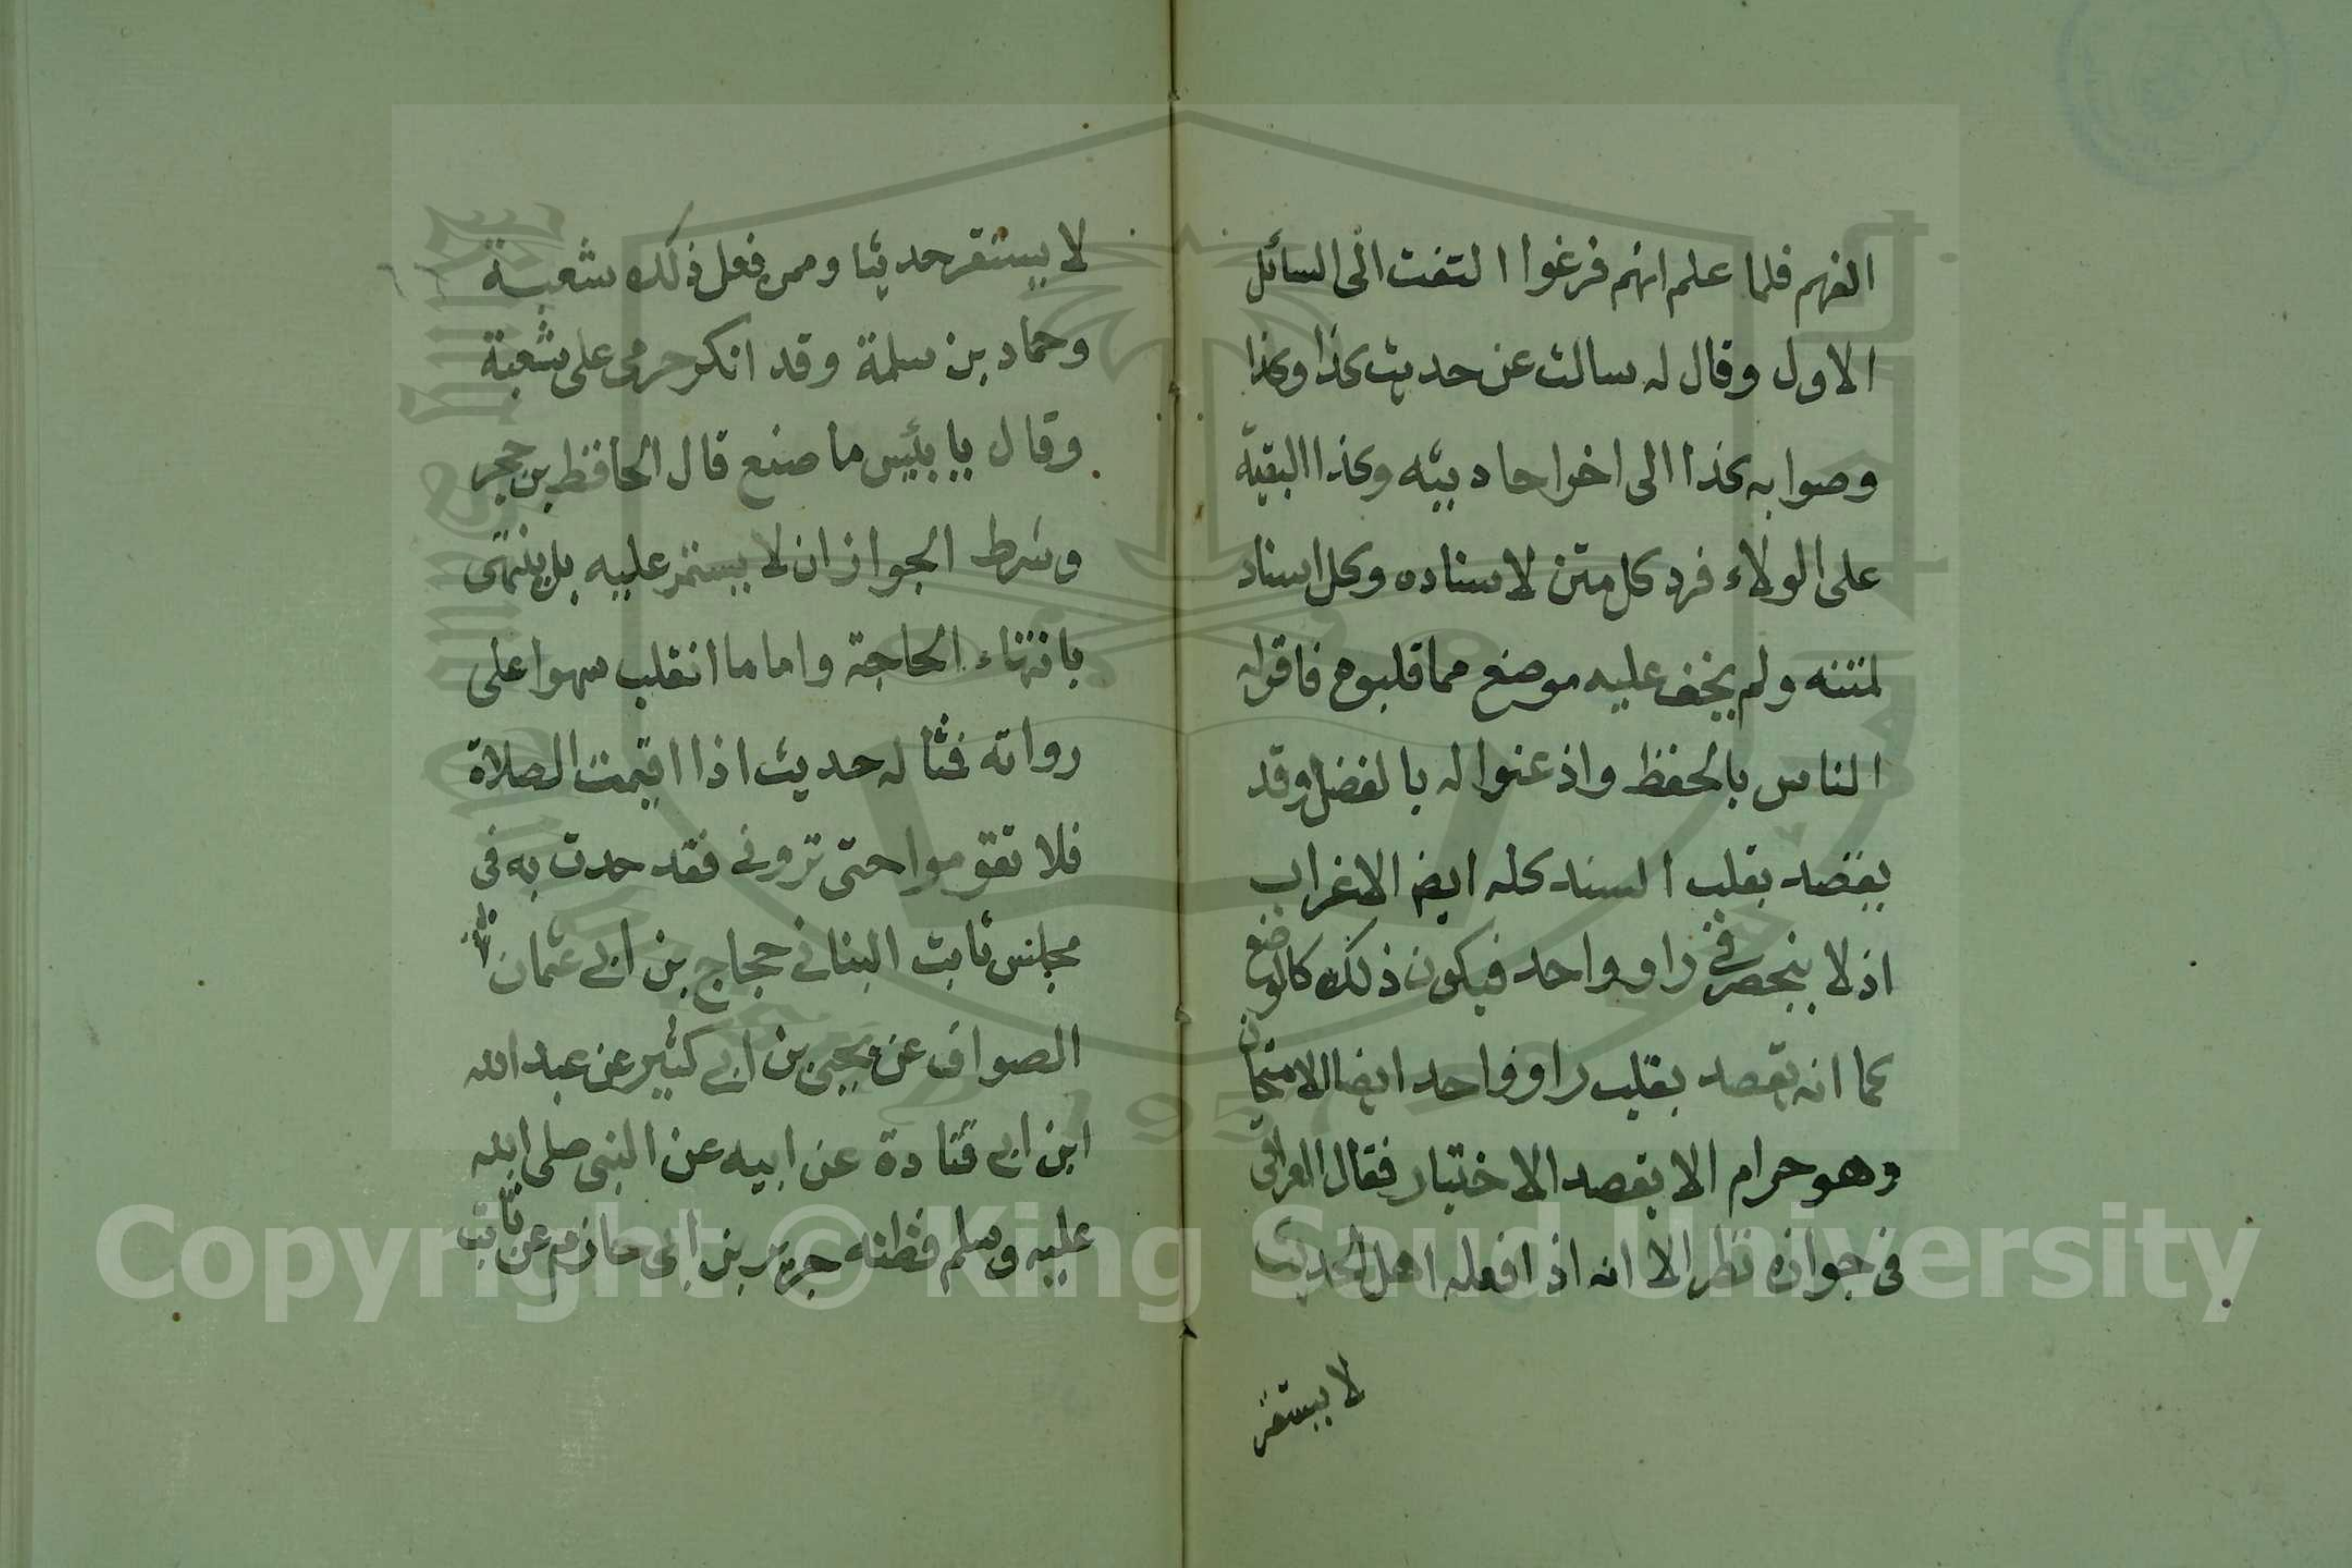 الفهم فلما علم انهم فرغوا التفت الى السائل
الاول وقال له سالت عن حديث كذا وكذا
وصوابه كذا الى اخر احاديثه وكذا البقية
على الولاء فرد كل متن لاسناده وكل اسناد
لمتنه ولم يخف عليه موضع مما قلبوه فاقر له
الناس بالحفظ واذعنوا له بالفضل وقد
يقصد بقلب السند كله ايض الاغراب
اذ لا ينحصر في راو واحد فيكون ذلك كالوضع
كما انه يقصد بقلب راو واحد ايضا الامتحان
وهو حرام الا بقصد الاختبار فقال العراقي
في جوازه نظر الا انه اذا فعله اهل الحديث
لا يستقر
لا يستقر حديثا وممن فعل ذلك شعبة
وحماد بن سلمة وقد انكر حرمى على شعبة
وقال يا بئيس ما صنع قال الحافظ بن حجر
وشرط الجواز ان لا يستمر عليه بل ينتهى
بانتهاء الحاجة واما ما انقلب سهوا على
رواته فمثاله حديث اذا اقيمت الصلاة
فلا تقوموا حتى تروني فقد حدث به في
مجلس ثابت البناني حجاج بن ابي عثمان
الصواف عن يحيى بن ابي كثير عن عبد الله
ابن ابي قتادة عن ابيه عن النبى صلى الله
عليه وسلم فظنه جرير بن ابى حازم عن ثابت
Copyright © King Saud University
1957